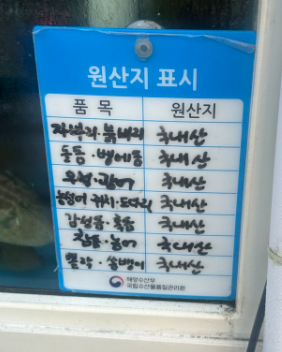 원산지 표시
품 목 원산지
자바리·붉바리 국내산
돌돔·뱅에돔 국내산
우럭·광어 국내산
농어 쥐치·도다리 국내산
감성돔·흑돔 국내산
참돔·농어 국내산
볼락·쏨뱅이 국내산
해양수산부
국립수산물품질관리원